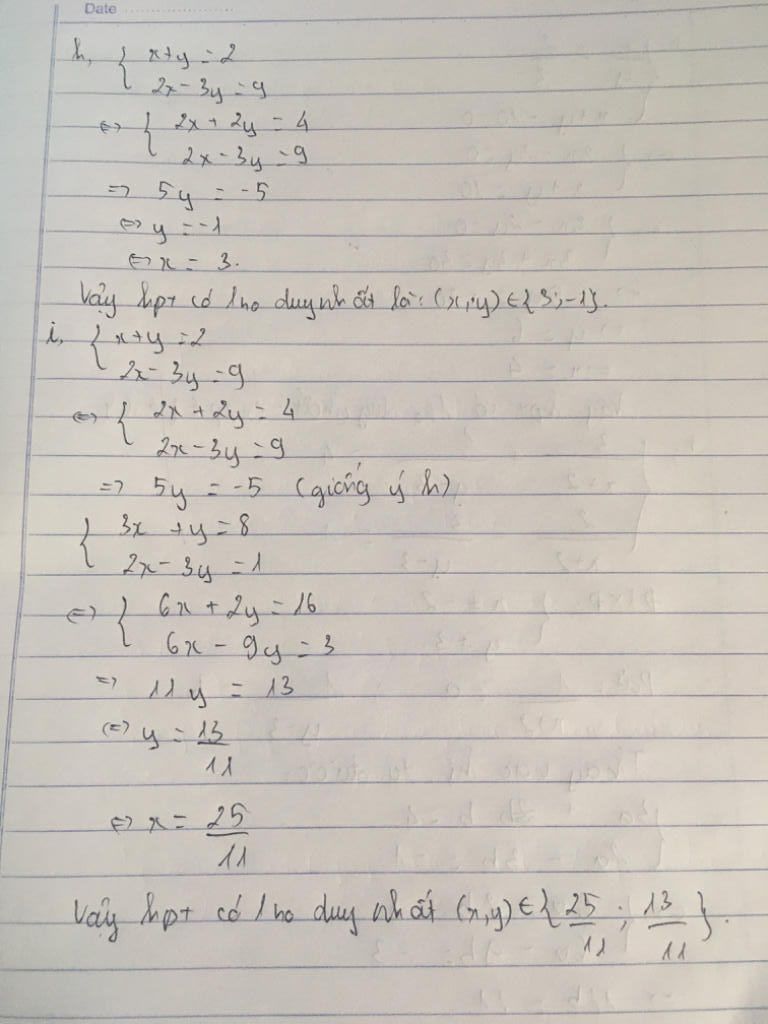 Date
h, { x+y = 2
2x - 3y = 9
<=> { 2x + 2y = 4
2x - 3y = 9
=> 5y = -5
<=> y = -1
<=> x = 3.
Vậy hpt có 1 no duy nhất là: (x,y) ∈ {3;-1}.
i, { x+y = 2
2x - 3y = 9
<=> { 2x + 2y = 4
2x - 3y = 9
=> 5y = -5 (giống ý h)
{ 3x + y = 8
2x - 3y = 1
<=> { 6x + 2y = 16
6x - 9y = 3
=> 11y = 13
<=> y = 13/11
<=> x = 25/11
Vậy hpt có 1 no duy nhất (x,y) ∈ { 25/11 ; 13/11 }.